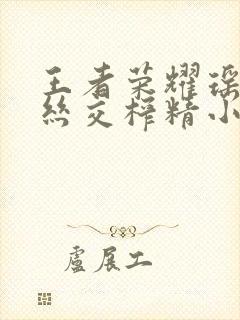 王者荣耀瑶
丝交榨精小
卢展工